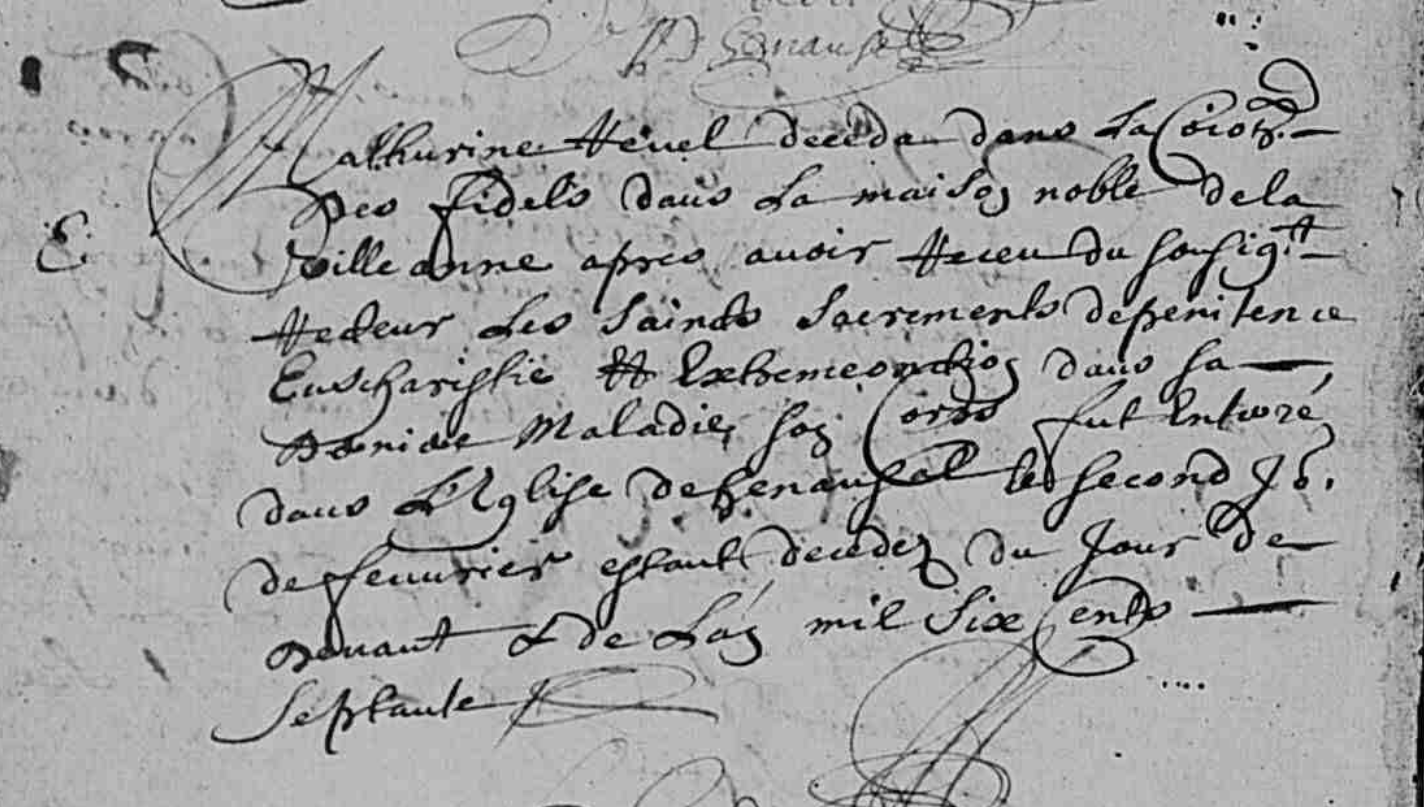 Mathurine Heuel deceda dans La
Des fidels dans La maison noble dela
ville anne apres auoir Receu du sousigt
Recteur Les saincts sacrements depenitence
Euscharistie Et Extremeonction dans sa
Derniere Maladie, son Corps fut Enterré
dans L'Eglise deHenansal le second Jo.
de feuurier estant decedez du Jour de
Deuant & de L'an mil six cents
septante